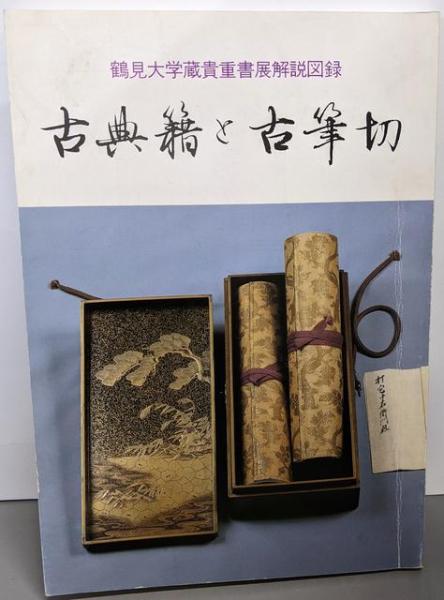 鶴見大学蔵貴重書展解説図録
古典籍と古筆切